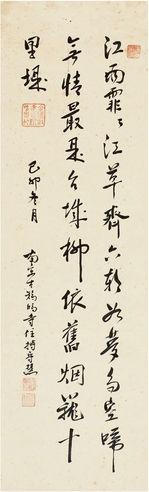 江雨霏〻江草齊六朝如夢鳥空啼
無情最是台城柳依舊烟籠十
里堤
己卯冬月
南京
寺住持